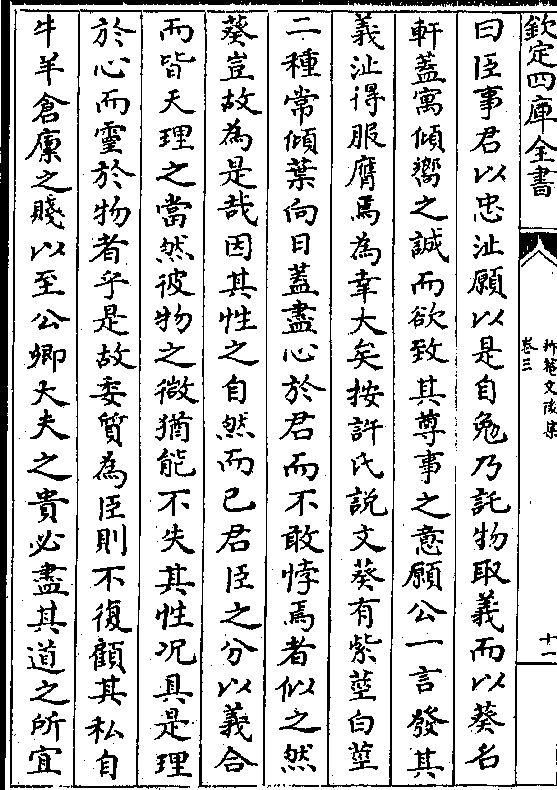 欽定四庫全書
卷三
十一
曰臣事君以忠沚願以是自勉乃託物取義而以葵名
軒蓋寓傾嚮之誠而欲致其尊事之意願公一言發其
義沚得服膺焉為幸大矣按許氏說文葵有紫莖白莖
二種常傾葉向日蓋盡心於君而不敢悖焉者似之然
葵豈故為是哉因其性之自然而已君臣之分以義合
而皆天理之當然彼物之微猶能不失其性况具是理
於心而靈於物者乎是故委質為臣則不復顧其私自
牛羊倉廩之賤以至公卿大夫之貴必盡其道之所宜